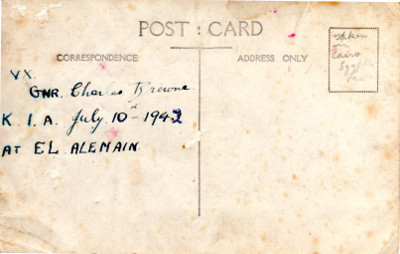 POST : CARD
CORRESPONDENCE
ADDRESS ONLY
taken
in
Cairo
Egypt
VX
GNR. Charles Browne
K. I. A. July 10th 1942
AT EL ALEMAIN